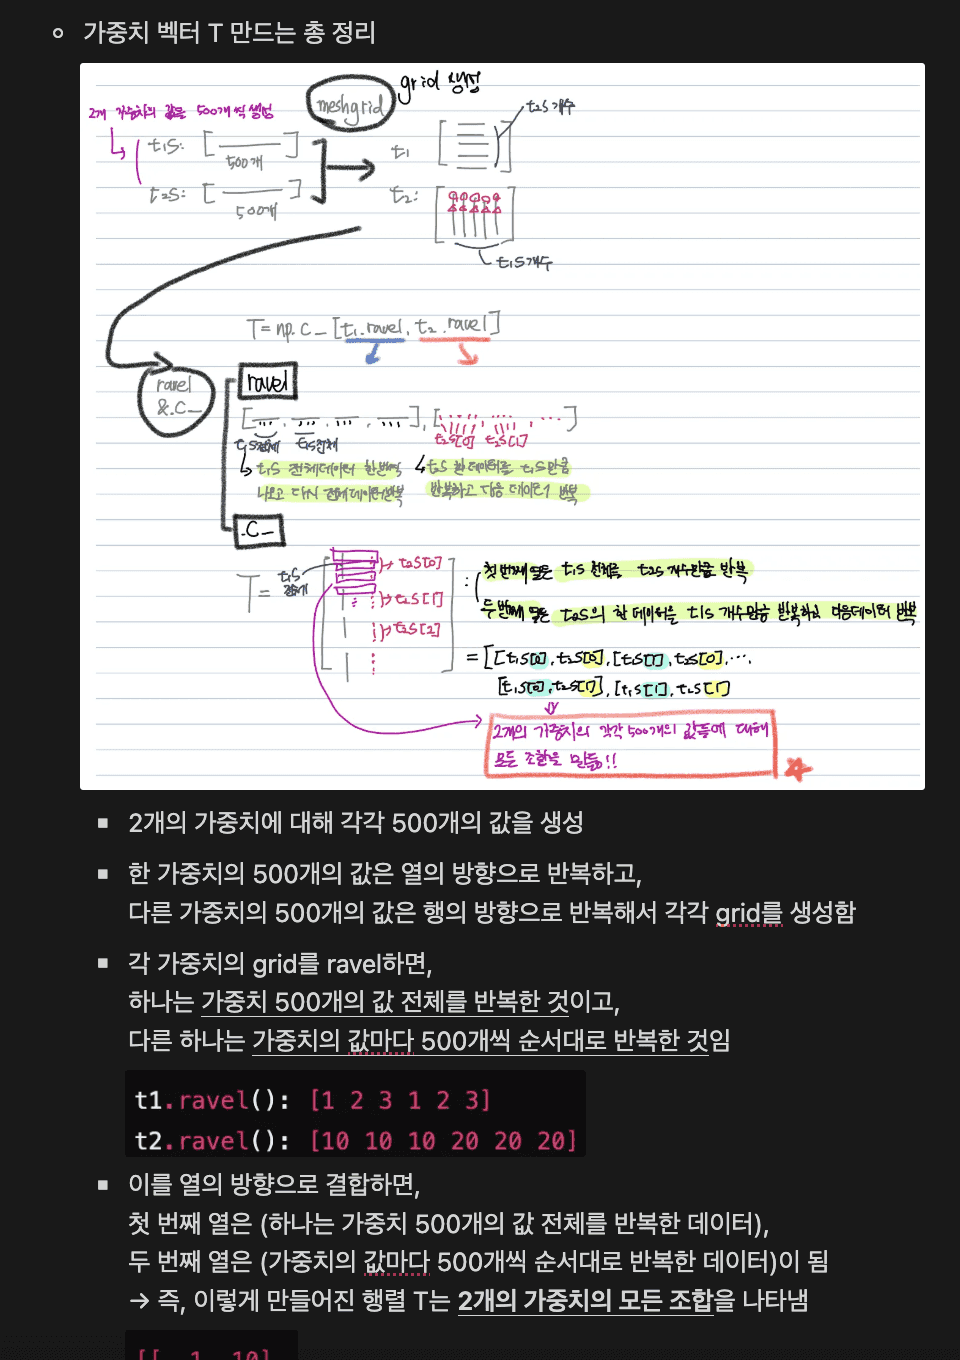 가중치 벡터 T 만드는 총 정리
meshgrid
grid 생성
2개 가중치의 값을 500개씩 생성
t1s: [ 500개 ]
t2s: [ 500개 ]
t1
t2s 개수
t2:
t1s 개수
T = np.c_[t1.ravel, t2.ravel]
ravel
& .c_
ravel
t1s전체 t1s전체
t2s[0] t2s[1]
t1s 전체데이터 한번씩
나오고 다시 전체데이터반복
t2s 한 데이터를 t1s만큼
반복하고 다음 데이터 반복
.c_
T =
t1s
전체
t2s[0]
t2s[1]
t2s[2]
: 첫번째 열은 t1s 전체를 t2s 개수만큼 반복
두번째 열은 t2s의 한 데이터를 t1s 개수만큼 반복하고 다음데이터 반복
= [[t1s[0], t2s[0], [t1s[1], t2s[0], ...
[t1s[0], t2s[1]], [t1s[1], t2s[1]
2개의 가중치의 각각 500개의 값들에 대해
모든 조합을 만듦!!
2개의 가중치에 대해 각각 500개의 값을 생성
한 가중치의 500개의 값은 열의 방향으로 반복하고,
다른 가중치의 500개의 값은 행의 방향으로 반복해서 각각 grid를 생성함
각 가중치의 grid를 ravel하면,
하나는 가중치 500개의 값 전체를 반복한 것이고,
다른 하나는 가중치의 값마다 500개씩 순서대로 반복한 것임
t1.ravel(): [1 2 3 1 2 3]
t2.ravel(): [10 10 10 20 20 20]
이를 열의 방향으로 결합하면,
첫 번째 열은 (하나는 가중치 500개의 값 전체를 반복한 데이터),
두 번째 열은 (가중치의 값마다 500개씩 순서대로 반복한 데이터)이 됨
→ 즉, 이렇게 만들어진 행렬 T는 2개의 가중치의 모든 조합을 나타냄
[[ 1 10]